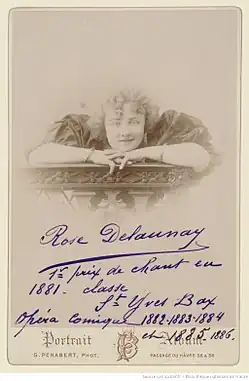 Rose Delaunay
1er prix de chant en
1881. classe
St Yves Bax
Opéra Comique 1882-1883-1884
et 1885 1886.
Portrait Album
G. PENABERT, PHOT. PASSAGE DU HÂVRE 36 & 38